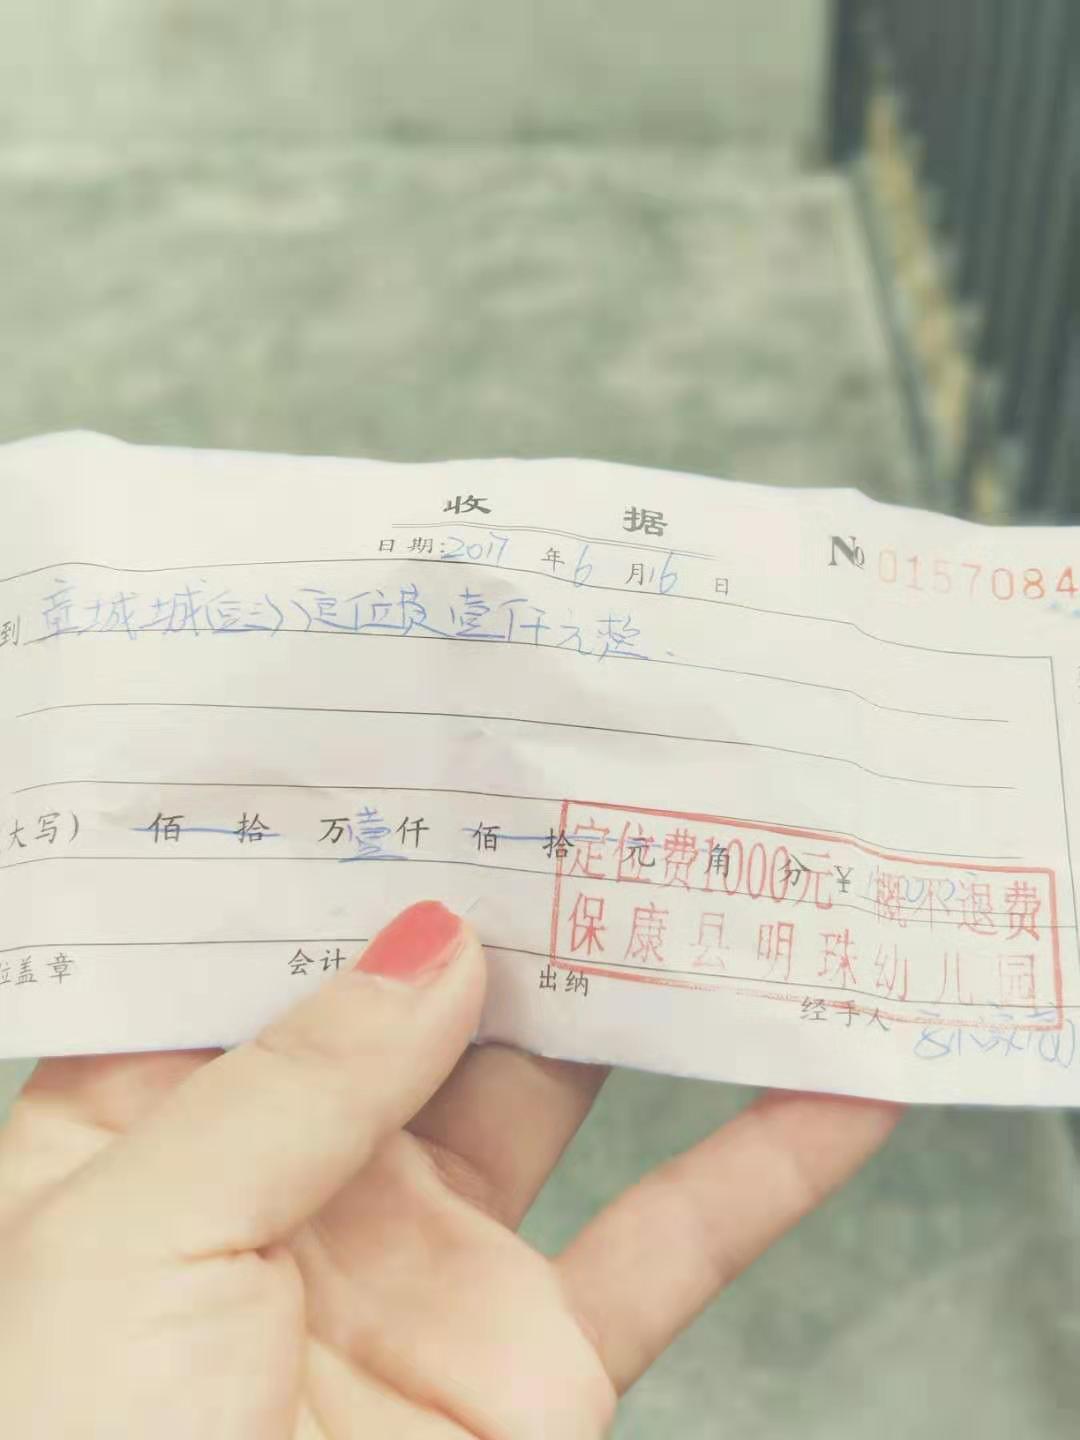 收 据
日期:2017年6月16日
No 0157084
到章城城 定位费壹仟元整.
大写) 佰 拾 万壹仟 佰 拾 元 角 分 ¥
定位费1000元 概不退费
保康县明珠幼儿园
位盖章 会计 出纳 经手人